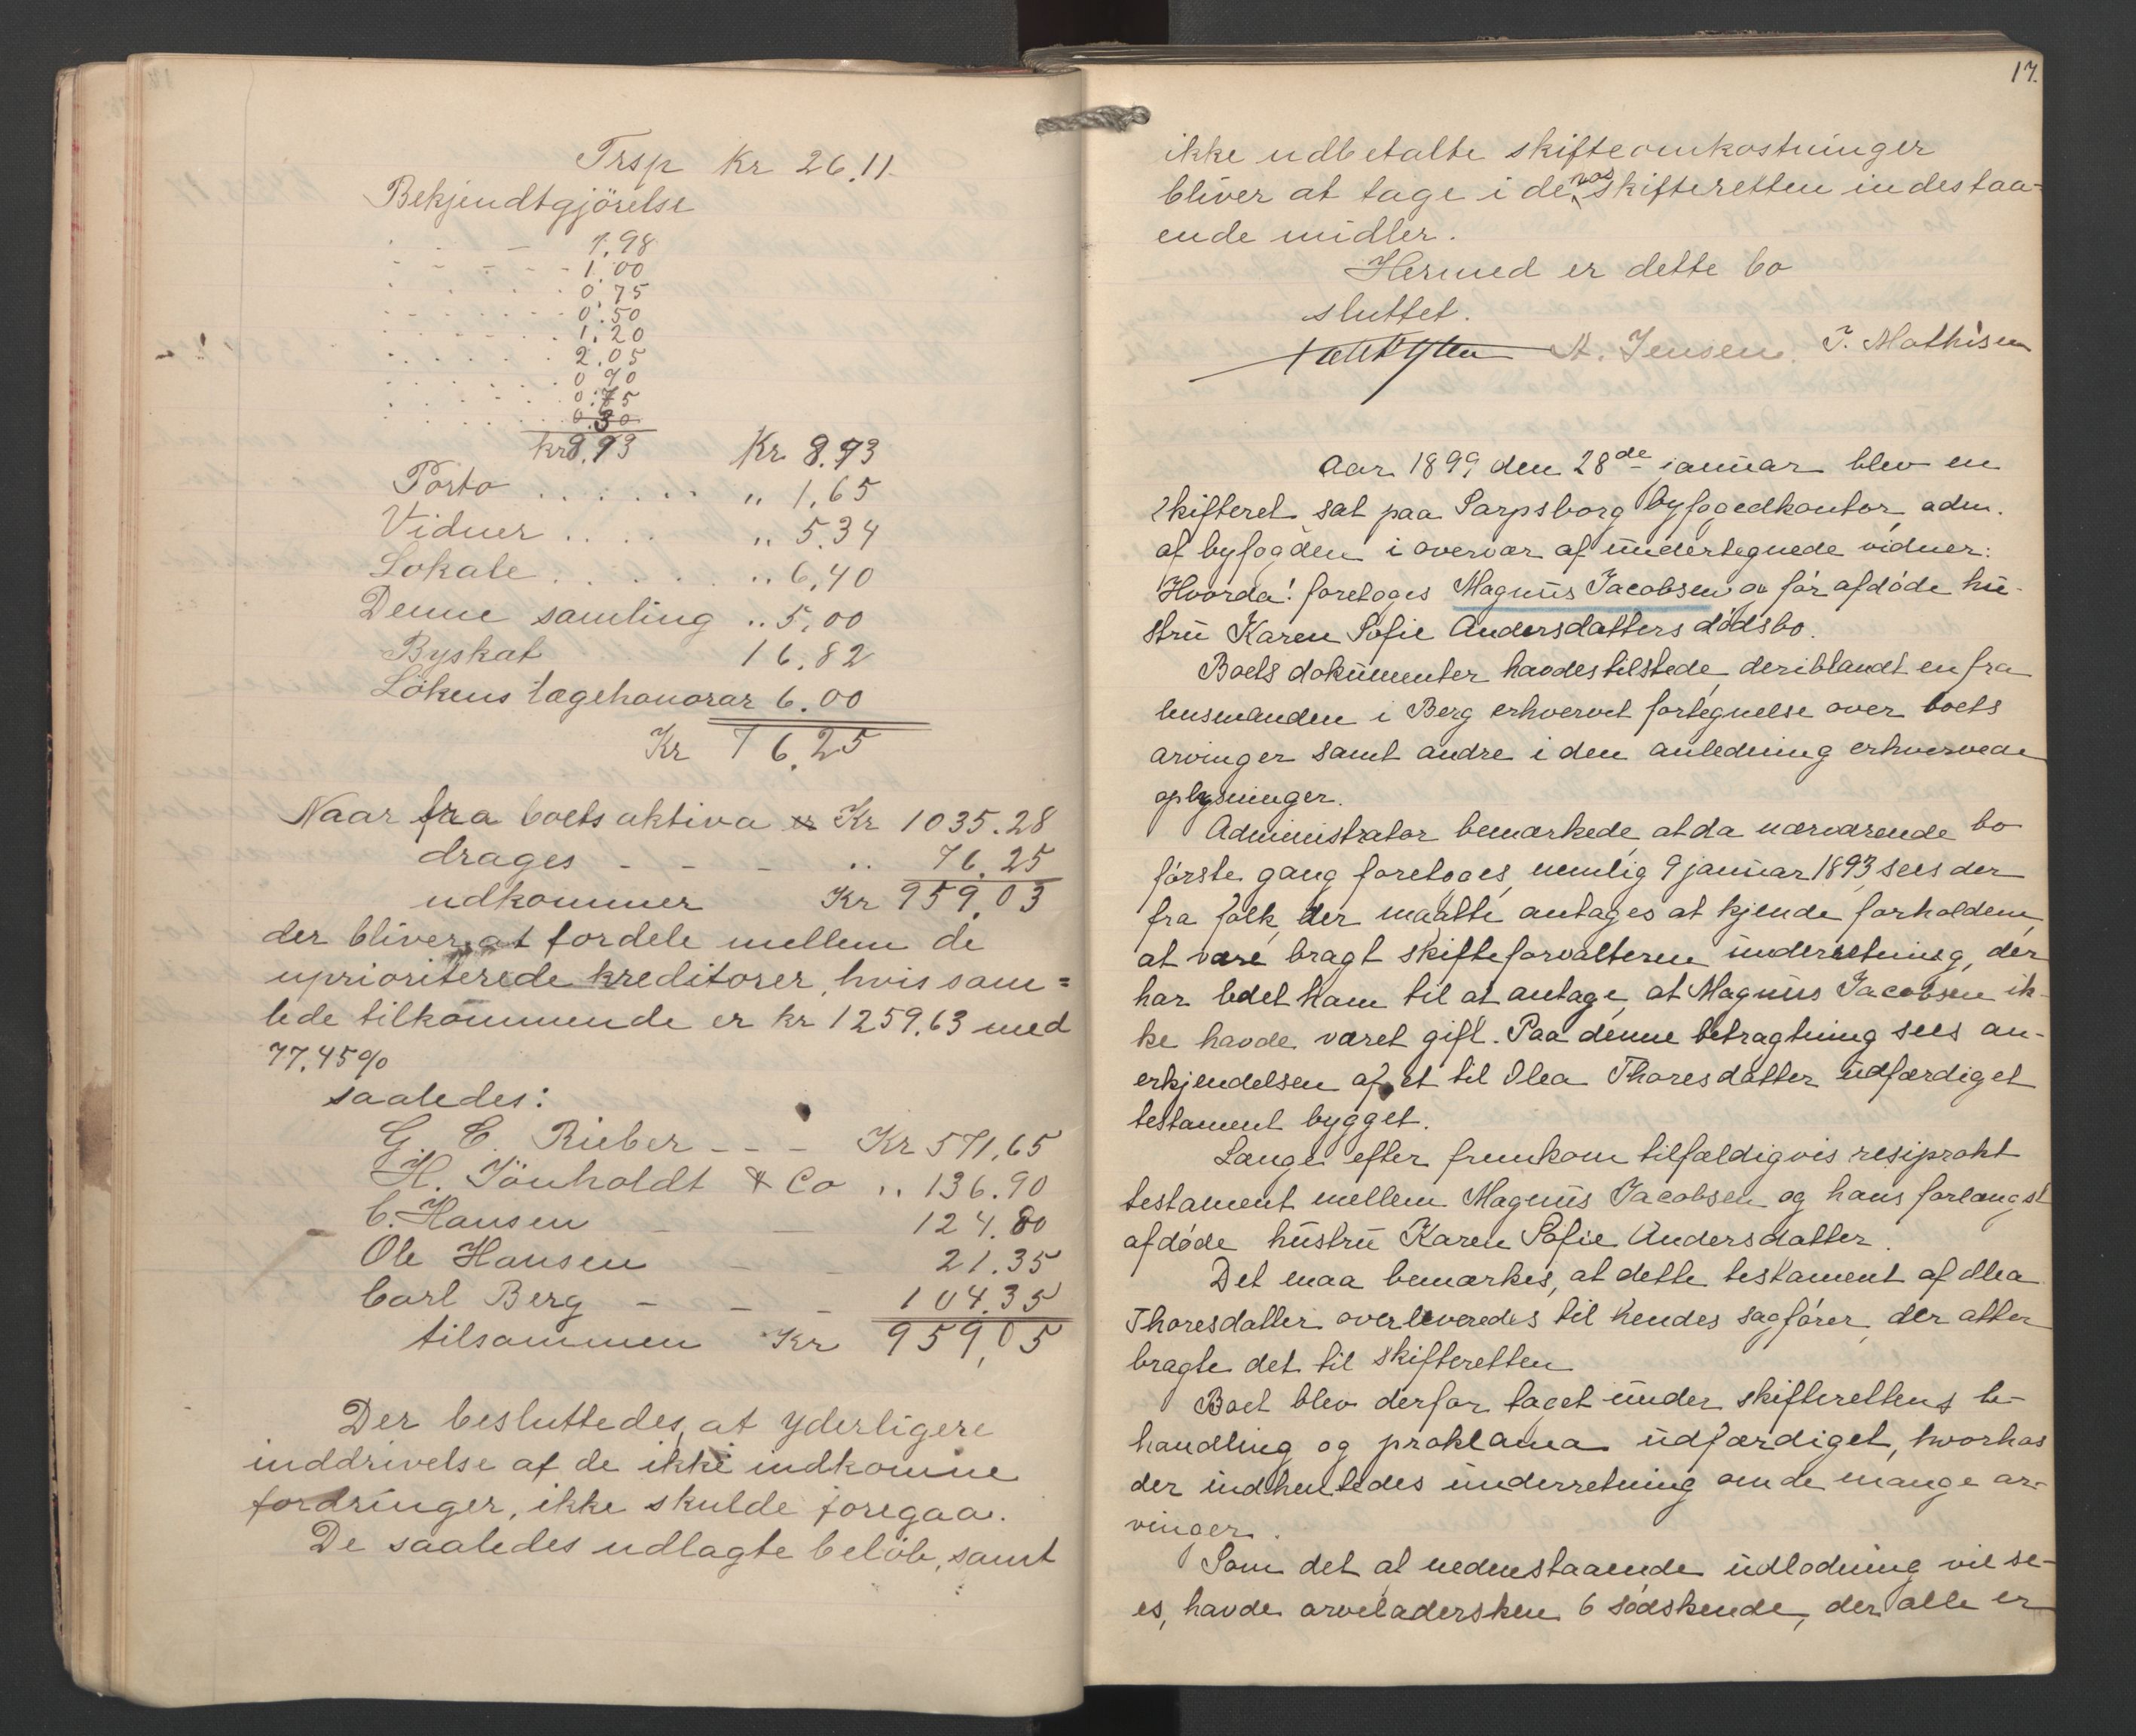 Trsp Kr 26.11
Bekjendtgjörelse
1.98
1.00
0.75
0.50
1.20
2.05
0.70
0.75
kr 8.93 Kr 8.93
Porto . . . . . . „ 1,65
Vidner . . . . „ 5.34
Lokale . . . . . „ 6,40
Denne samling „ 5,00
Byskat 16.82
Lökens lægehonorar 6.00
Kr 76.25
Naar fra boets aktiva Kr 1035.28
drages - - - „ 76.25
udkommer Kr 959.03
der bliver at fordele mellem de
uprioriterede kreditorer, hvis sam=
lede tilkommende er kr 1259.63 med
77.45%
saaledes:
G. C. Rieber - - - Kr 571,65
H. Jönholdt & Co „ 136.90
C. Hansen - - 124.80
Ole Hansen - - 21.35
Carl Berg - - - 104.35
tilsammen Kr 959,05
Der besluttedes, at yderligere
inddrivelse af de ikke indkomne
fordringer, ikke skulde foregaa.
De saaledes udlagte belöb, samt
17.
ikke udbetalte skifteomkostninger
bliver at tage i de hos skifteretten indestaa-
ende midler.
Hermed er dette bo
sluttet.
A. Jensen. J. Mathisen
Aar 1899 den 28de januar blev en
skifteret sat paa Sarpsborg byfogedkontor, adm.
af byfogden i overvær af undertegnede vidner:
Hvorda! foretoges Magnus Jacobsen og før afdøde hu-
stru Karen Sofie Andersdatters dødsbo.
Boets dokumenter havdes tilstede, deriblandt en fra
lensmanden i Berg erhvervet fortegnelse over boets
arvinger samt andre i den anledning erhvervede
oplysninger.
Administrator bemærkede, at da nærværende bo
første gang foretoges, nemlig 9 januar 1893, sees der
fra folk, der maatte antages at kjende forholdene,
at være bragt skifteforvalteren underretning, der
har ledet ham til at antage, at Magnus Jacobsen ik-
ke havde været gift. Paa denne betragtning sees an-
erkjendelsen af et til Olea Thoresdatter udfærdiget
testament bygget.
Længe efter fremkom tilfældigvis resiprokt
testament mellem Magnus Jacobsen og hans forlængst
afdøde hustru Karen Sofie Andersdatter.
Det maa bemærkes, at dette testament af Olea
Thoresdatter overleveredes til hendes sagfører, der atter
bragte det til skifteretten
Boet blev derfor taget under skifterettens be-
handling og proklama udfærdiget, hvorhos
der indhentedes underretning om de mange ar-
vinger.
Som det af nedenstaaende udlodning vil se-
es, havde arveladersken 6 sødskende, der alle er